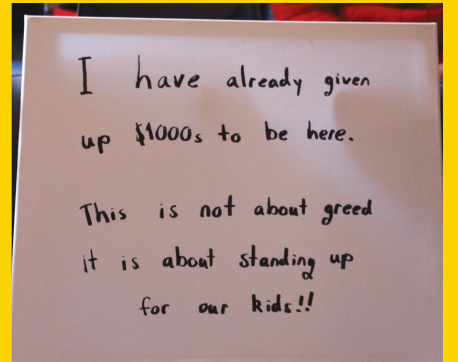 I have already given
up $1000s to be here.
This is not about greed
it is about standing up
for our kids!!